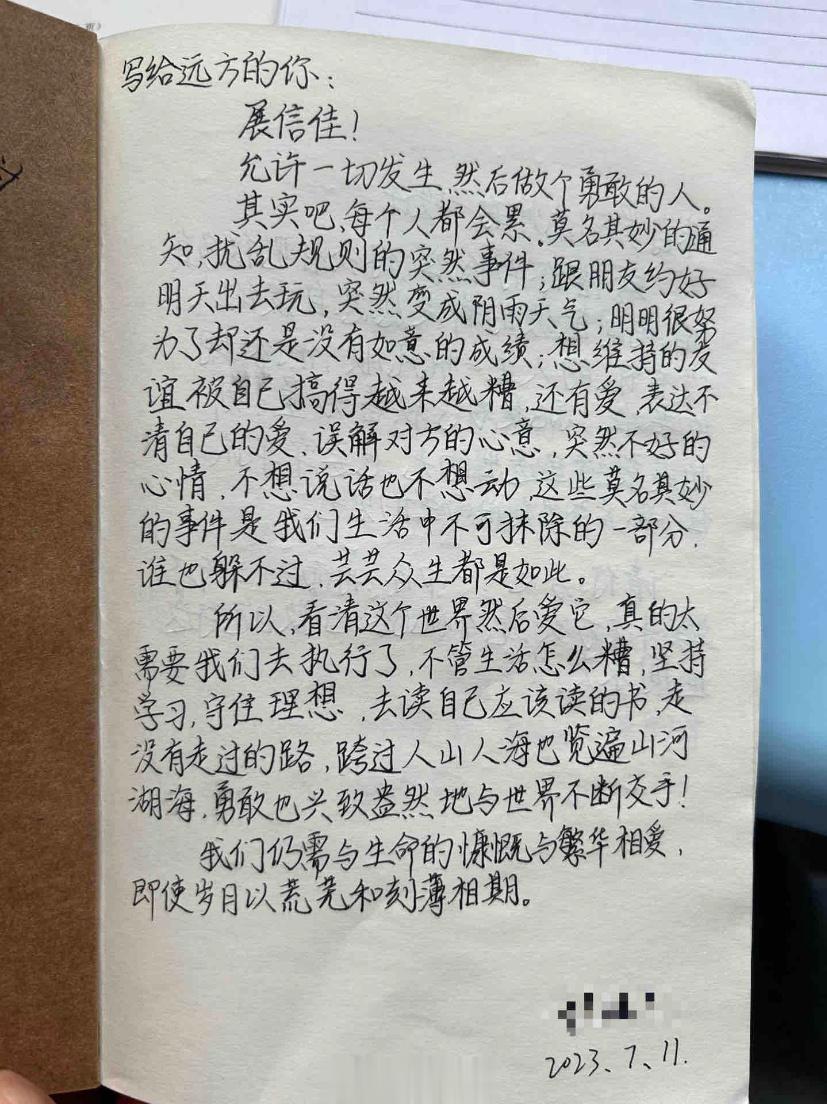 写给远方的你：
展信佳！
允许一切发生，然后做个勇敢的人。
其实吧，每个人都会累。莫名其妙的通
知，扰乱规则的突然事件；跟朋友约好
明天出去玩，突然变成阴雨天气；明明很努
力了却还是没有如意的成绩；想维持的友
谊被自己搞得越来越糟，还有爱，表达不
清自己的爱、误解对方的心意，突然不好的
心情，不想说话也不想动，这些莫名其妙
的事件是我们生活中不可抹除的一部分，
谁也躲不过，芸芸众生都是如此。
所以，看清这个世界然后爱它，真的太
需要我们去执行了，不管生活怎么糟，坚持
学习，守住理想，去读自己应该读的书，走
没有走过的路，跨过人山人海也览遍山河
湖海，勇敢也兴致盎然地与世界不断交手！
我们仍需与生命的慷慨与繁华相爱，
即使岁月以荒芜和刻薄相期。
2023.7.11.